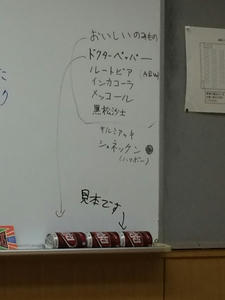 おいしいのみもの
ドクターペッパー
ルートビア (A&W)
インカコーラ
メッコール
黒松沙士
サルミアッキ
シュネッケン
(ハリボー)
見本です